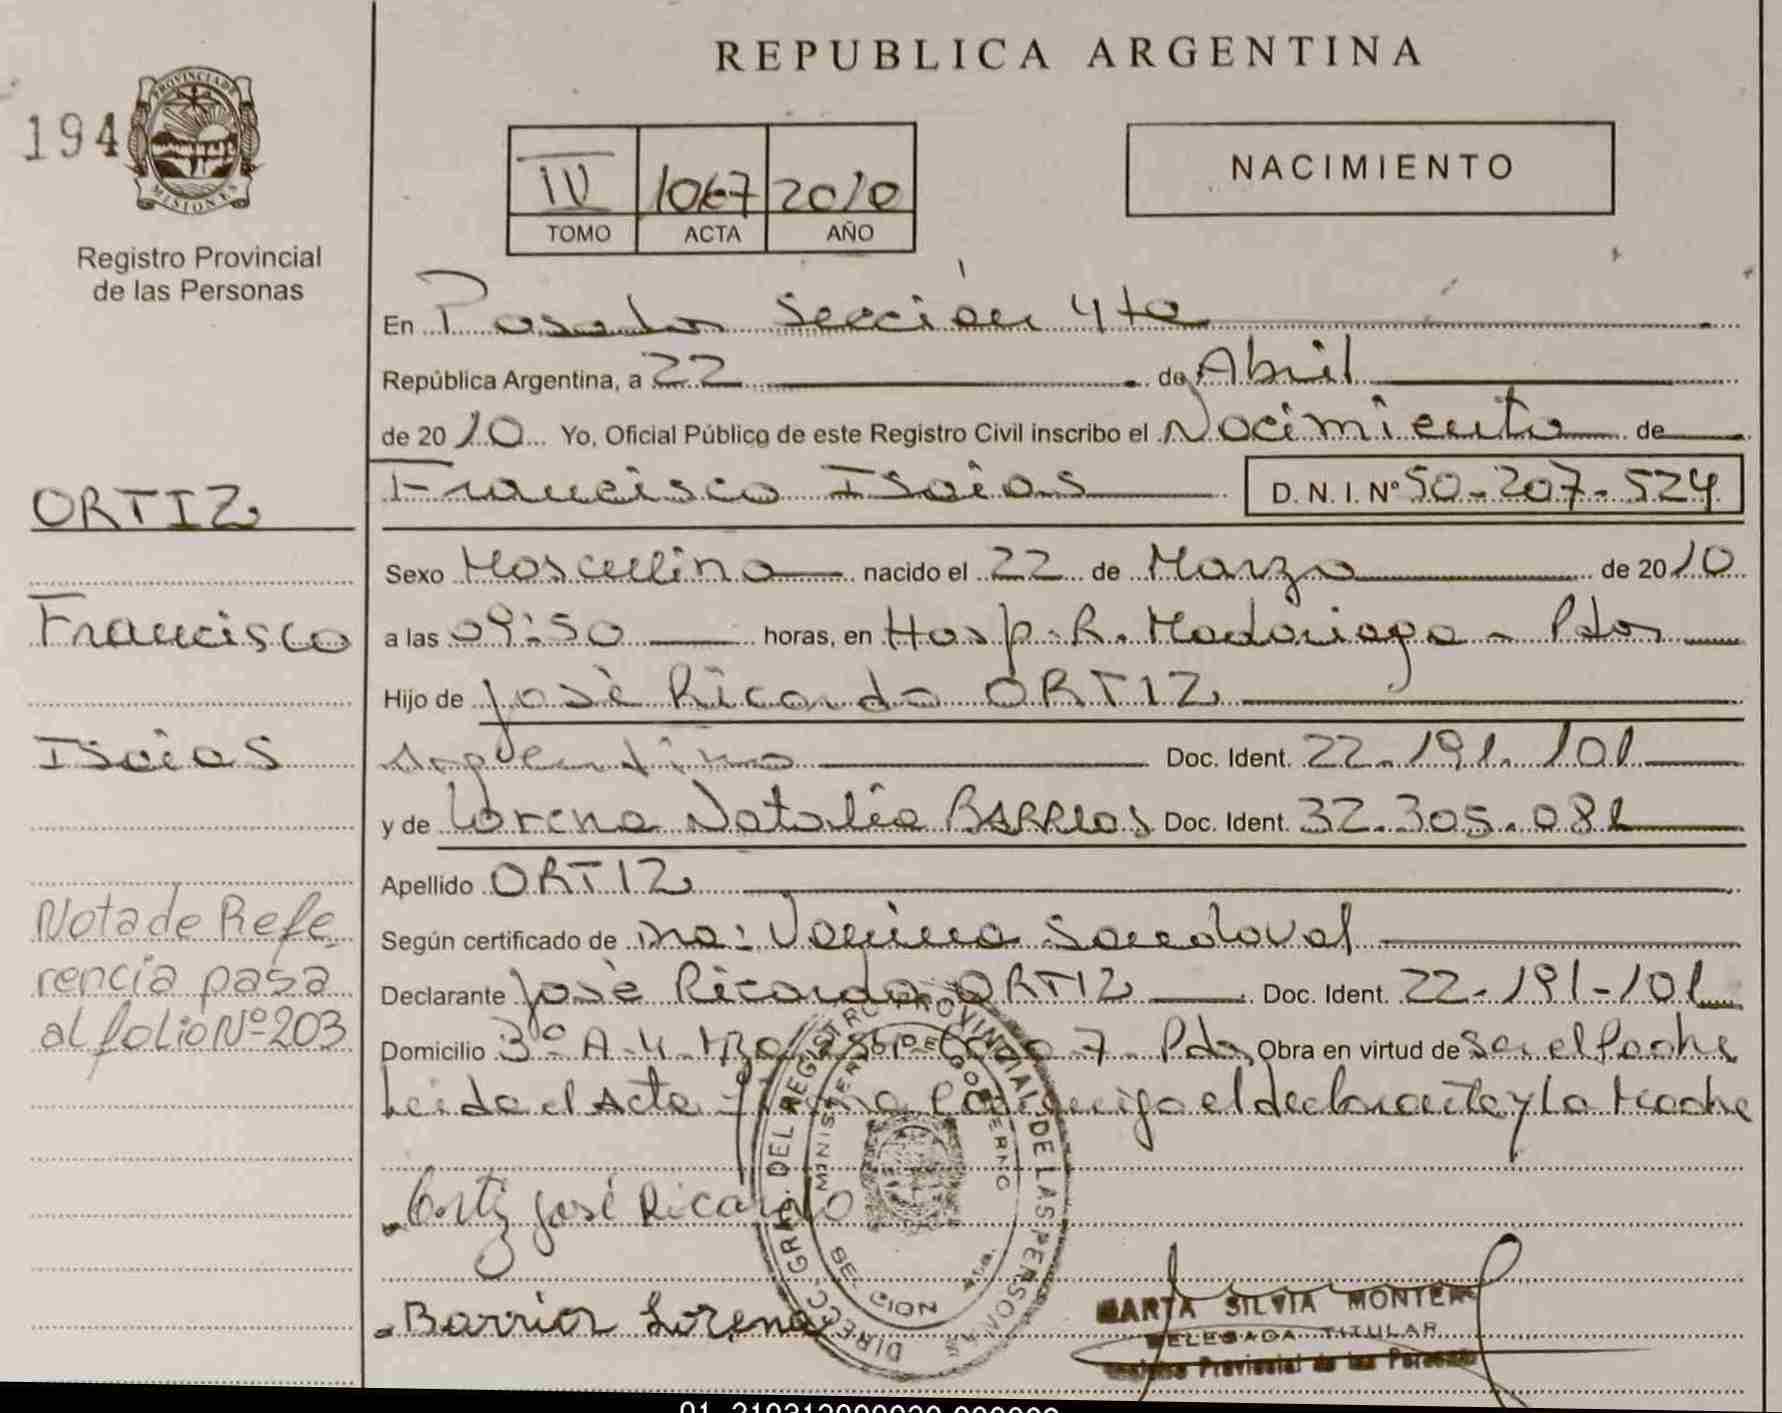 REPUBLICA ARGENTINA
194
PROVINCIA DE
MISIONES
Registro Provincial
de las Personas
IV 1067 2010
TOMO ACTA AÑO
NACIMIENTO
En Posadas Sección 4ta
República Argentina, a 22 de Abril
de 2010 Yo, Oficial Público de este Registro Civil inscribo el Nacimiento de
Francisco Isaias D. N. I. Nº 50-207-524
Sexo Masculino nacido el 22 de Marzo de 2010
a las 09:50 horas, en Hosp. R. Madariaga - Pdas
Hijo de José Ricardo ORTIZ
Argentino Doc. Ident. 22.191.101
y de Lorena Natalia BARRIOS Doc. Ident. 32.305.081
Apellido ORTIZ
Según certificado de Dra: Vanina Sandoval
Declarante José Ricardo ORTIZ Doc. Ident. 22-191-101
Domicilio 3º A-4 Mza Casa 7 - Pdas Obra en virtud de Ser el Padre
Leida el Acta Firma Conmigo el declarante y la Madre
Ortiz José Ricardo
Barrios Lorena
ORTIZ
Francisco
Isaias
Nota de Refe
rencia pasa
al folio Nº 203
DIRECC. GRAL. DEL REGISTRO PROVINCIAL DE LAS PERSONAS
MINISTERIO DE GOBIERNO
MARTA SILVIA MONTER
DELEGADA TITULAR
Provincial de las Personas